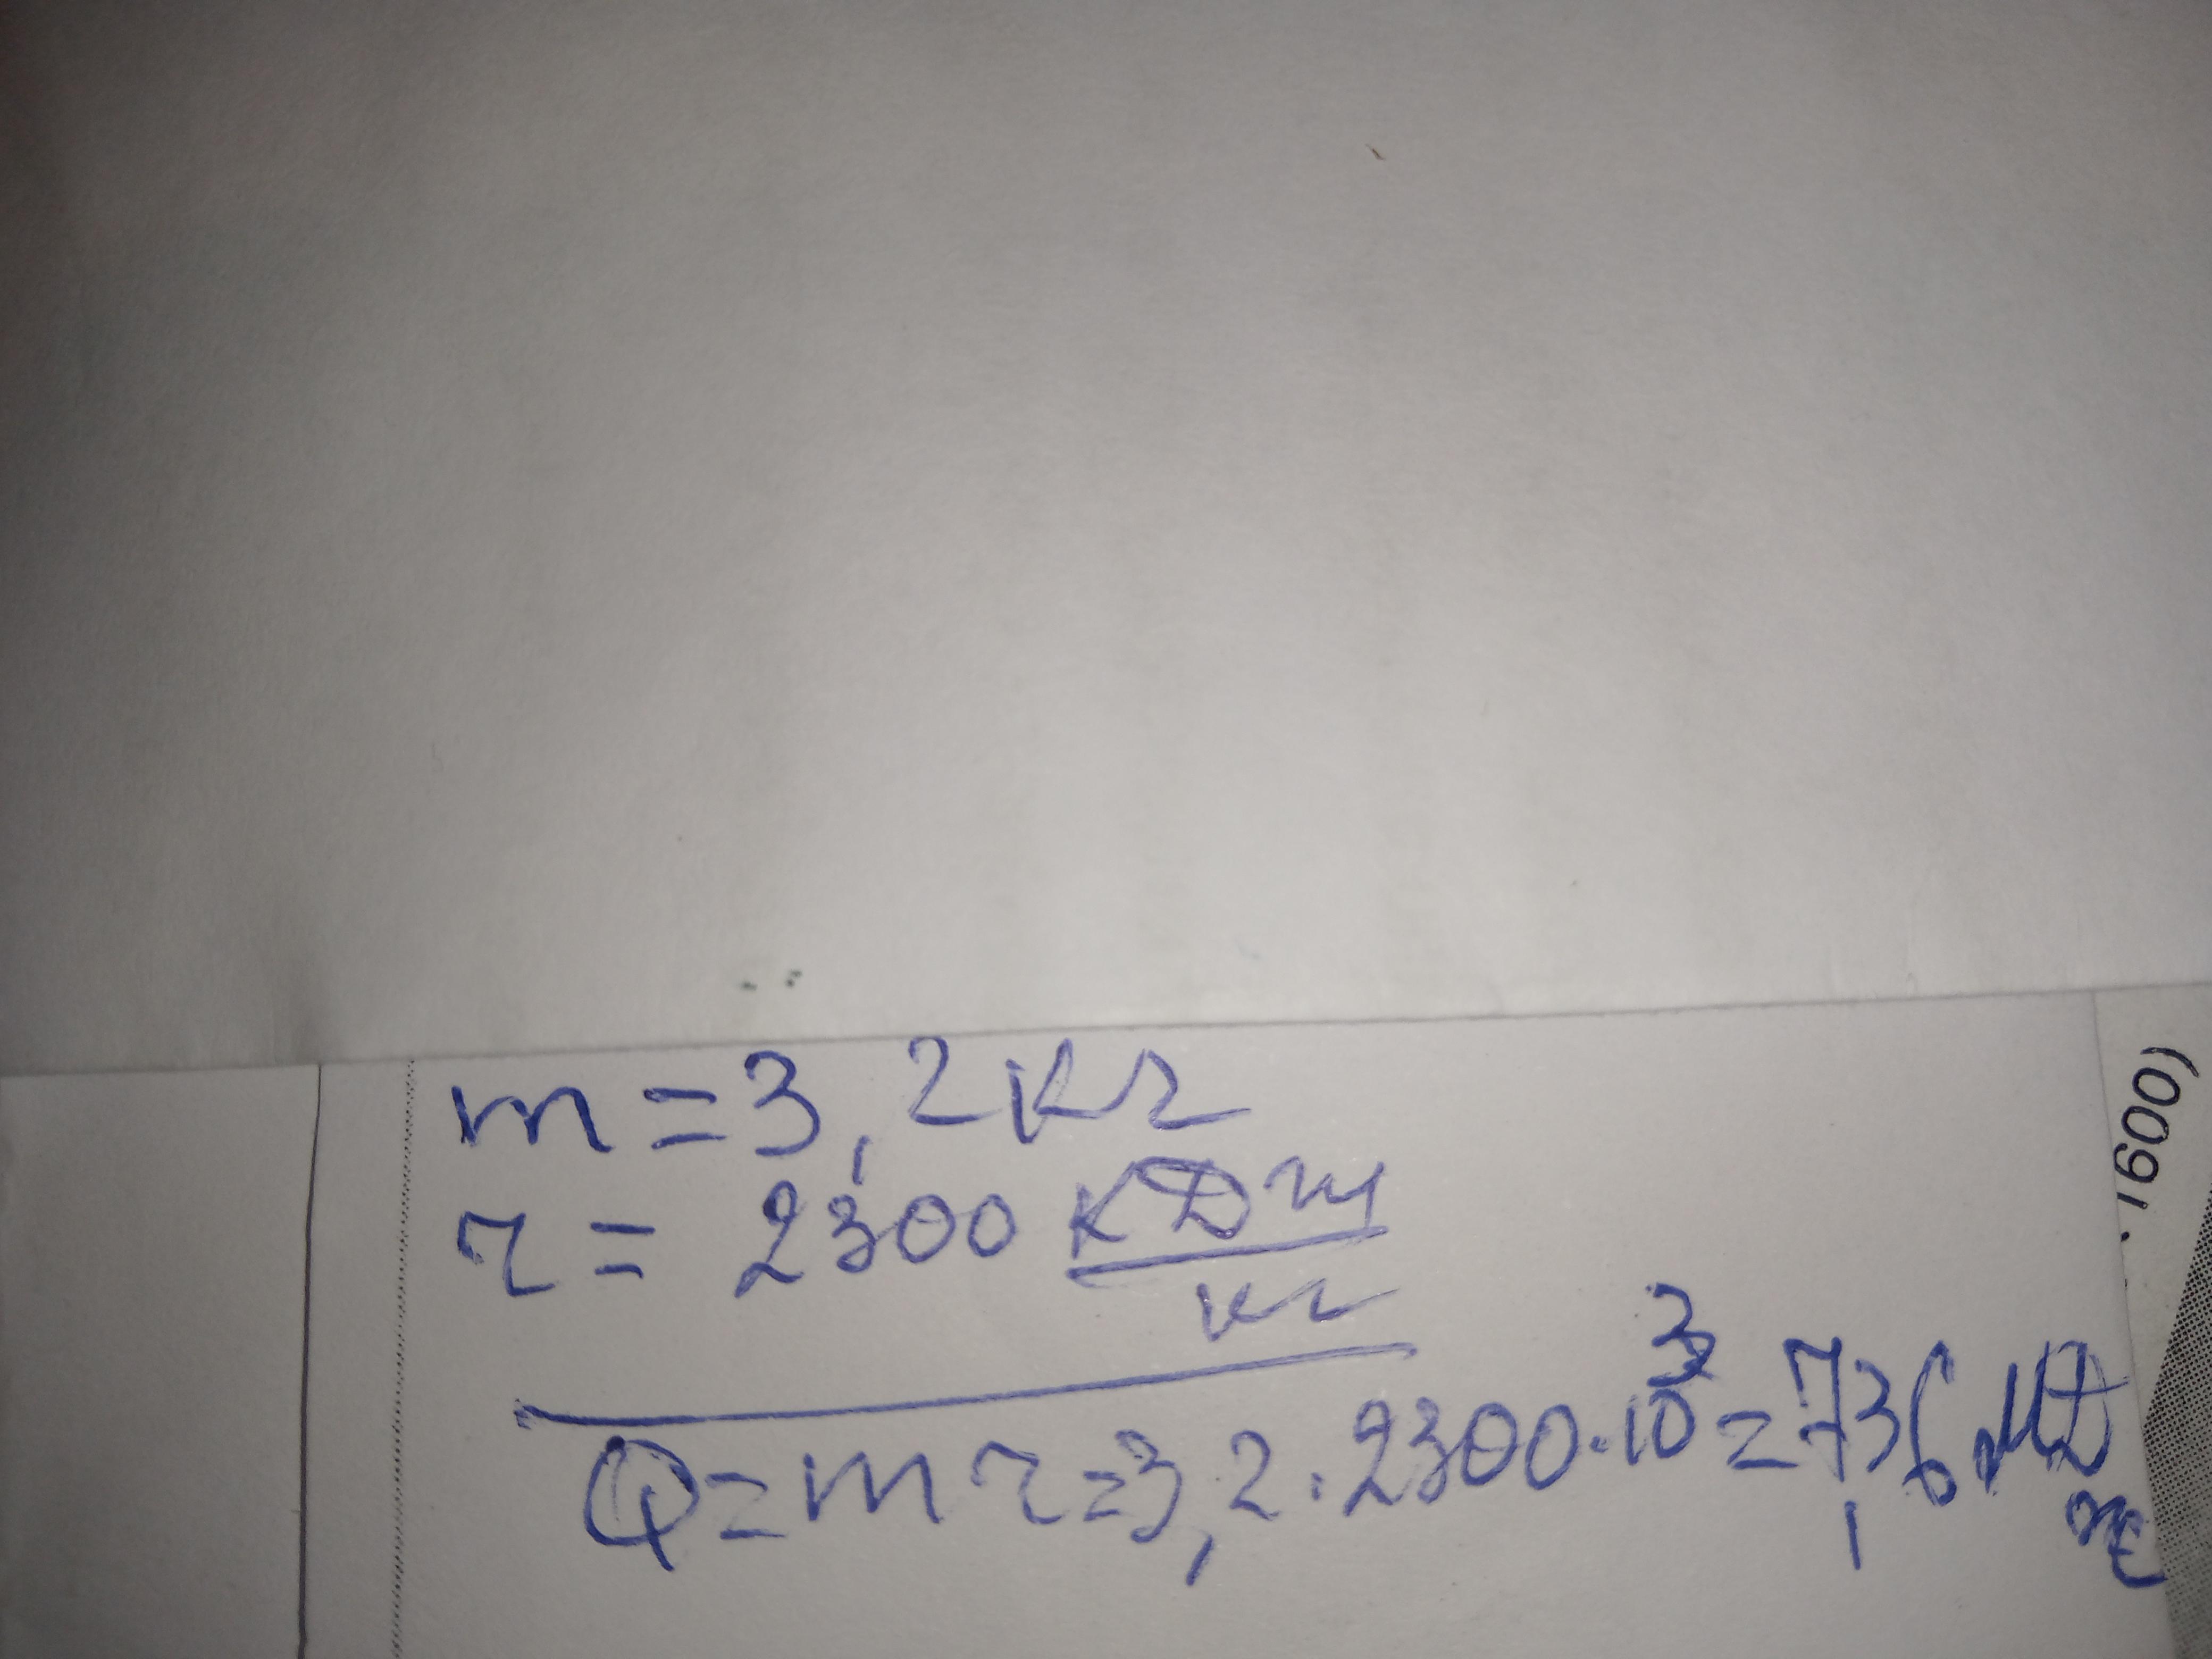 m = 3,2 кг
r = 2300 кДж
кг
Q = mr = 3,2 · 2300 · 10³ = 7,36 МДж
1600)